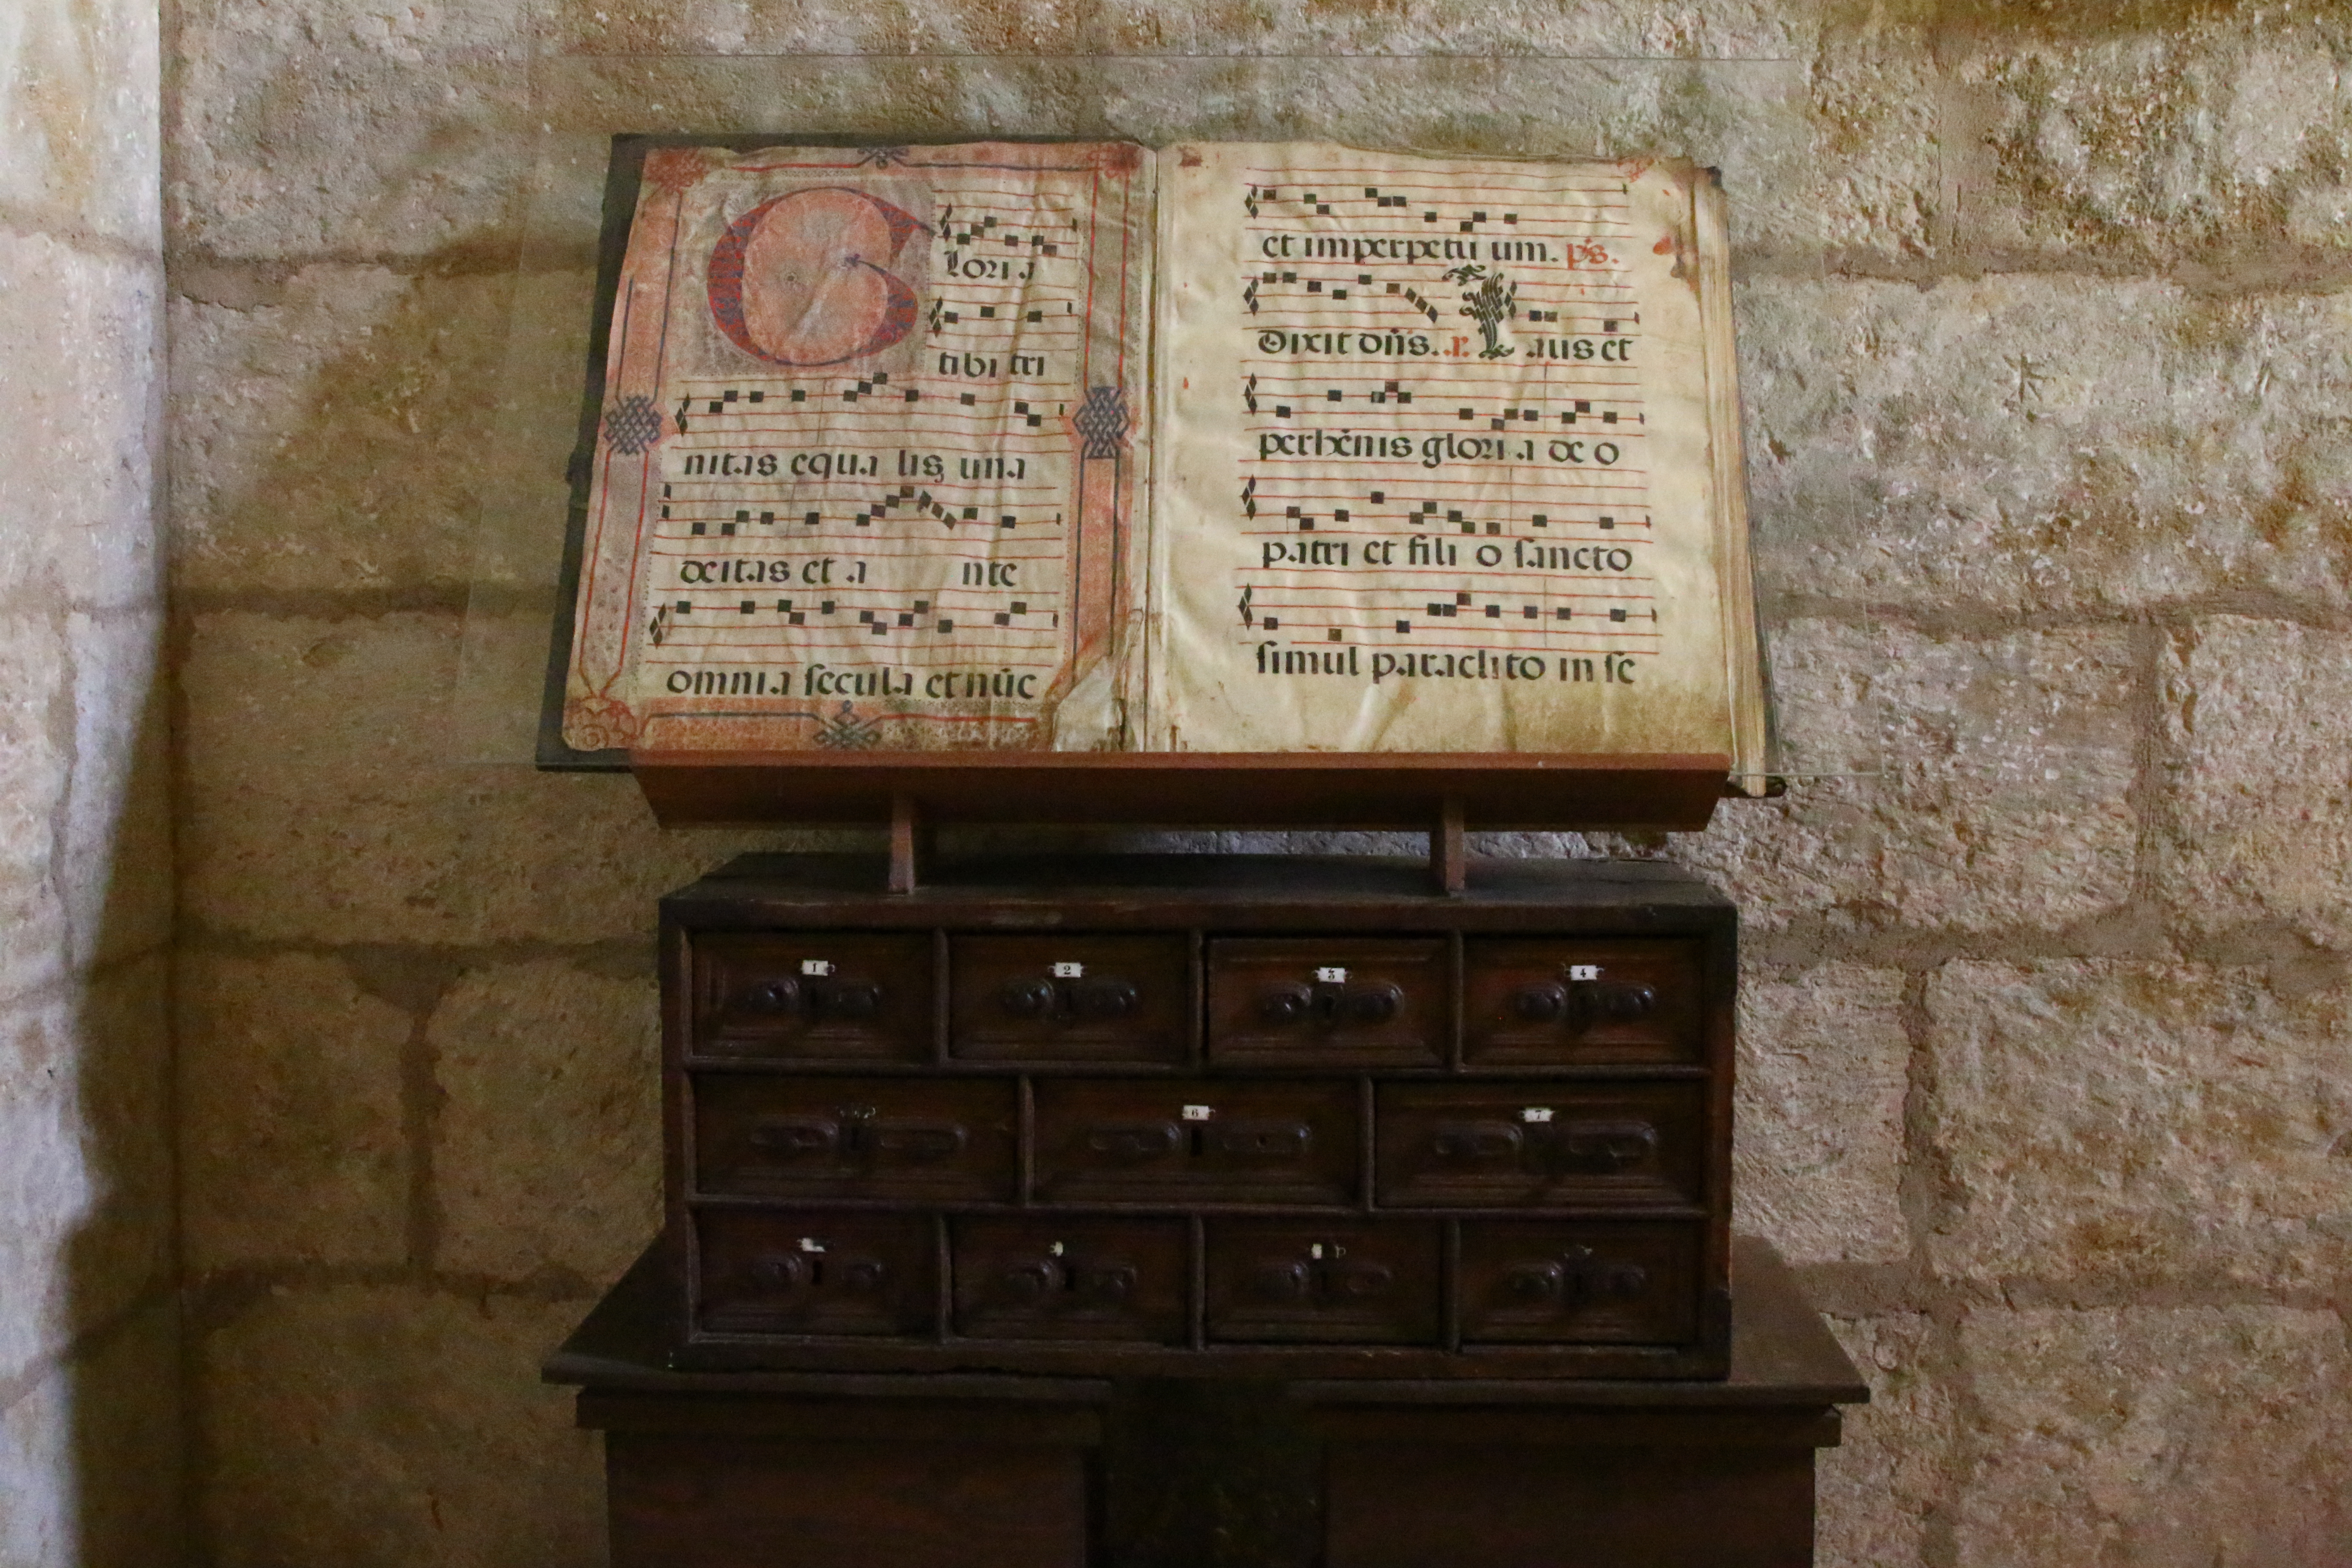 Glori a
tibi tri
nitas equa lis una
deitas et a nte
omnia secula et nūc
et imperpetu um. p̄s.
Dixit dn̄s. .r. Laus et
perhēnis glori a de o
patri et fili o sancto
simul paraclito in se
1 2 3 4
6 7